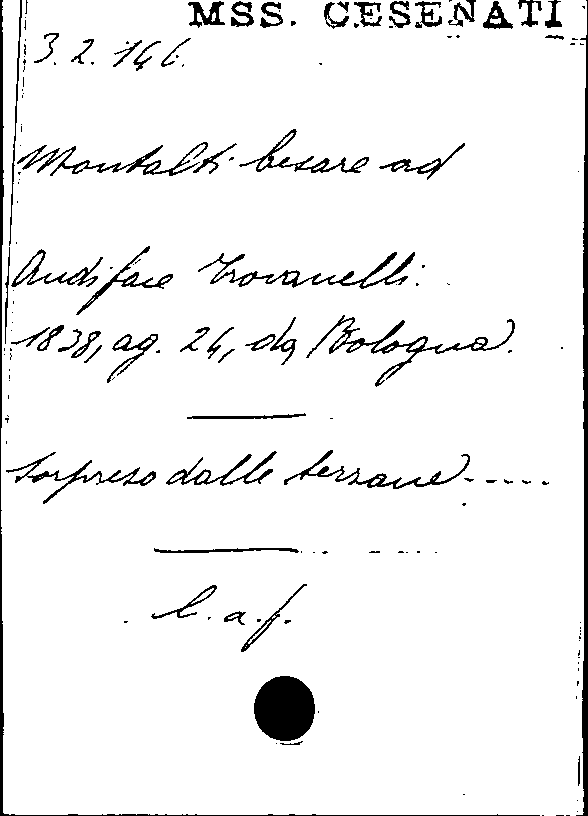 MSS. CESENATI
3. 2. 146.
Montalti Cesare ad
Audiface Trovanelli.
1838, ag. 24, da Bologna.
Sorpreso dalle terzane-----
l. a. f.